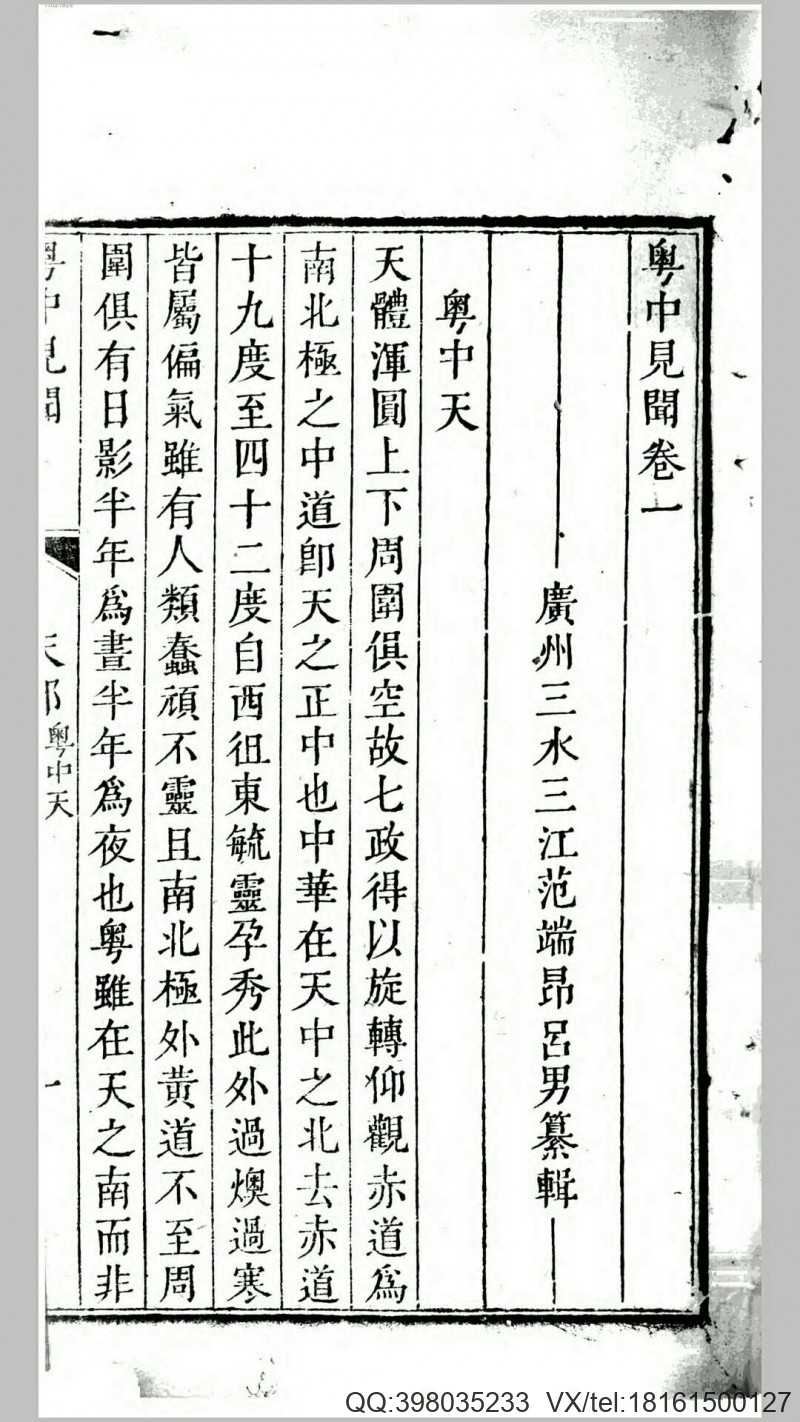 粵中見聞卷一
廣州三水三江范端昂呂男纂輯
粵中天
天體渾圓上下周圍俱空故七政得以旋轉仰觀赤道為
南北極之中道卽天之正中也中華在天中之北去赤道
十九度至四十二度自西徂東毓靈孕秀此外過燠過寒
皆屬偏氣雖有人類蠢頑不靈且南北極外黄道不至周
圍俱有日影半年為晝半年為夜也粵雖在天之南而非
粵中見聞
天部粵中天
一
QQ:398035233 VX/tel:18161500127